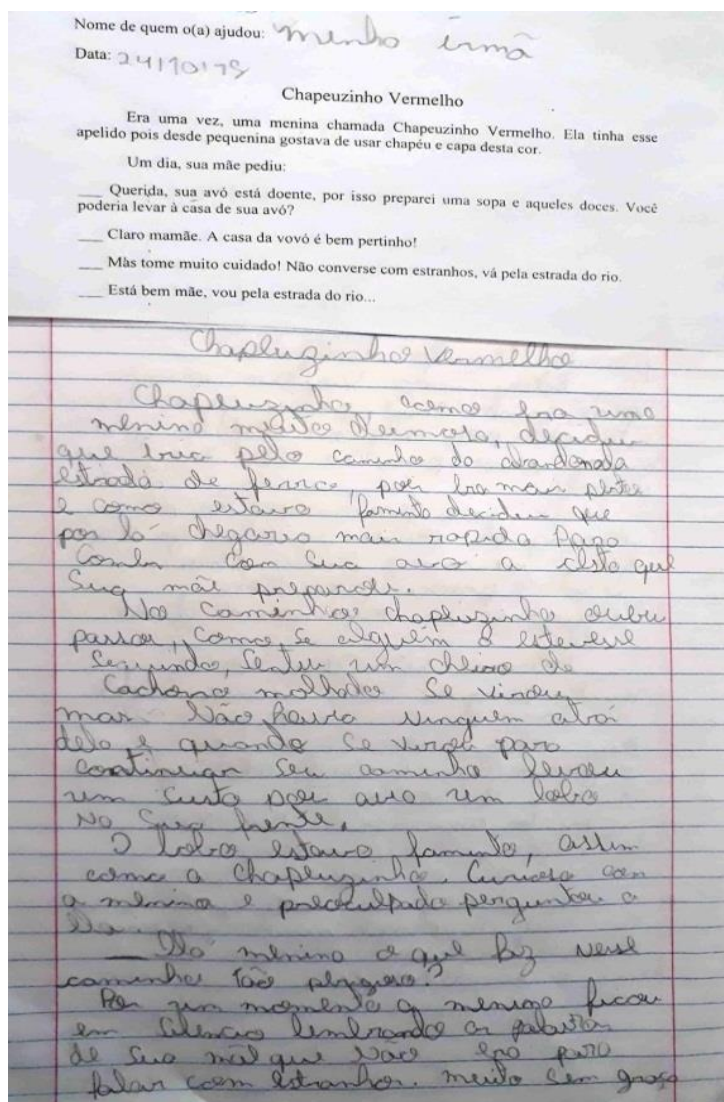 Nome de quem o(a) ajudou: minha irmã
Data: 24/10/18
Chapeuzinho Vermelho
Era uma vez, uma menina chamada Chapeuzinho Vermelho. Ela tinha esse
apelido pois desde pequenina gostava de usar chapéu e capa desta cor.
Um dia, sua mãe pediu:
___ Querida, sua avó está doente, por isso preparei uma sopa e aqueles doces. Você
poderia levar à casa de sua avó?
___ Claro mamãe. A casa da vovó é bem pertinho!
___ Mas tome muito cuidado! Não converse com estranhos, vá pela estrada do rio.
___ Está bem mãe, vou pela estrada do rio...
Chapeuzinho Vermelho
Chapeuzinho como era uma
menina muito teimosa, decidiu
que iria pelo caminho da abandonada
estrada de ferro, pois era mais perto
e como estava faminta decidiu que
por lá chegaria mais rapido para
comer com sua avó a cesta que
sua mãe preparou.
No caminho chapeuzinho ouviu
passos, como se alguém a estevesse
seguindo, sentiu um cheiro de
cachorro molhado se virou
mas não havia ninguém atrás
dela e quando se virou para
continuar seu caminho levou
um susto pois avia um lobo
na sua frente.
O lobo estava faminto, assim
como a chapeuzinho. Curioso com
a menina e preoculpado perguntou a
ela.
___ Olá menina o que faz nesse
caminho tão perigoso?
Por um momento a menina ficou
em silencio lembrando as palavras
de sua mãe que não era para
falar com estranhos. muito sem graça